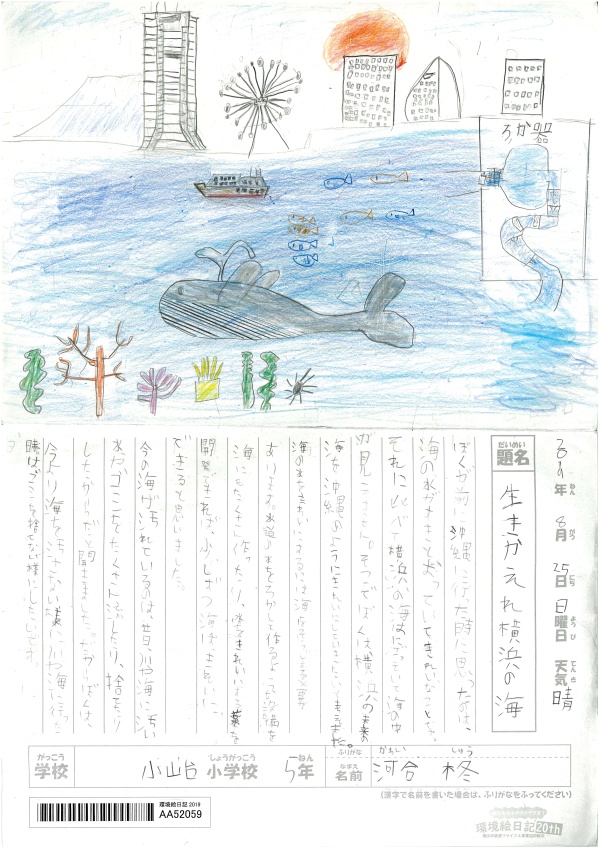 ろか器
2019年 8月 25日 日曜日 天気 晴
ねん がつ にち ようび てんき
だいめい
題名 生きかえれ横浜の海
ぼくが前に沖縄に行った時に思ったのは、
海の水がすきとおっていてきれいなことです。
それにくらべて横浜の海は
が見えません。そこでぼくは横浜の
海を沖縄のようにきれいにしたいと
海の水をきれいにするには海
あります。水道の水をろかして作るような設備を
海にたくさん作ったり、水をきれいにする薬を
開発できれば、少しずつ海はきれいに
できると思いました。
今の海が汚れているのは昔、川や海に汚い
水やゴミなどをたくさん流したり、捨てたり
したからだと聞きました。だからぼくは、
今より海を汚さない様に川や海に行った
時はゴミを捨てない様にしたいです。
がっこう しょうがっこう ねん ふりがな かわい しゅう
学校 小山台 小学校 5年 なまえ 名前 河合 柊
(漢字で名前を書いた場合は、ふりがなをふってください)
環境絵日記 2019
AA52059
環境絵日記20th